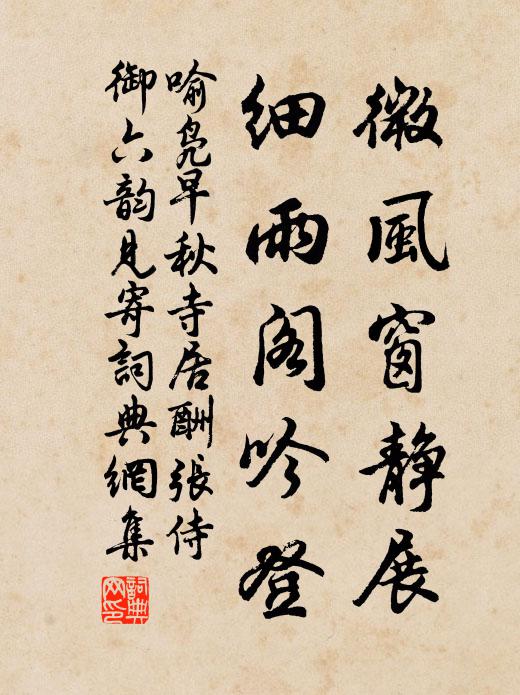 微風窗靜展
細雨阁吟登
喻凫早秋寺居酬張侍
御六韵見寄詞典網集
詞典
网印